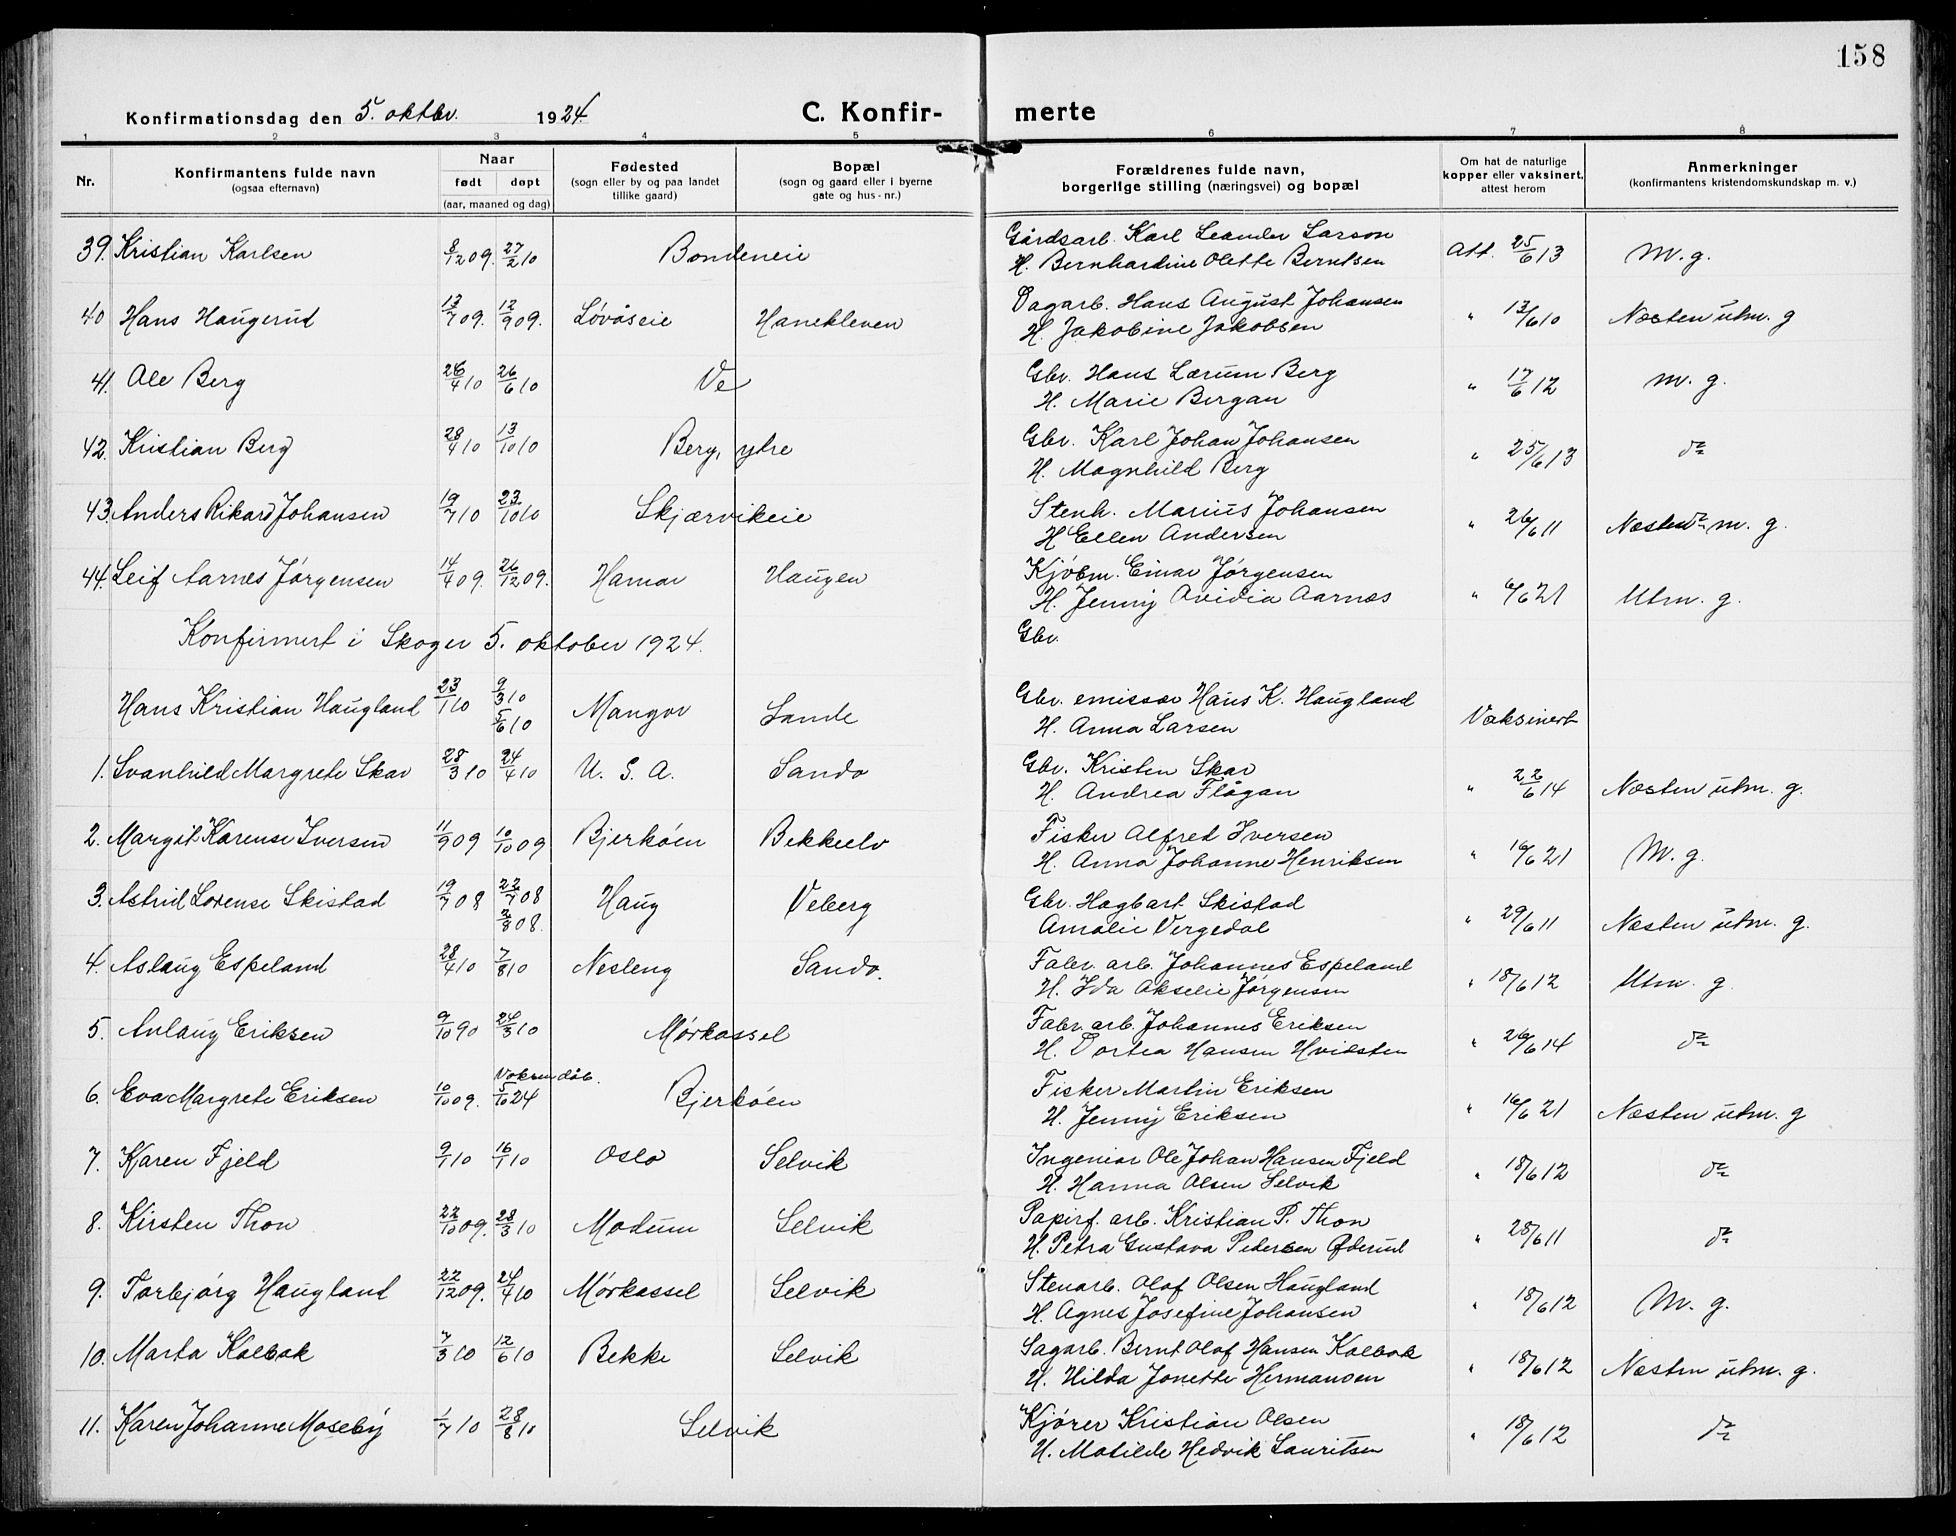 158
Konfirmationsdag den 5. oktbr. 1924.
C. Konfirmerte
1 2 3 4 5 6 7 8
Nr.
Konfirmantens fulde navn
(ogsaa efternavn)
Naar
født døpt
(aar, maaned og dag)
Fødested
(sogn eller by og paa landet
tillike gaard)
Bopæl
(sogn og gaard eller i byerne
gate og hus-nr.)
Forældrenes fulde navn,
borgerlige stilling (næringsvei) og bopæl
Om hat de naturlige
kopper eller vaksinert,
attest herom
Anmerkninger
(konfirmantens kristendomskundskap m. v.)
39. Kristian Karlsen 8/12 09. 27/2 10 Bondeneie Gårdsarb. Karl Leander Larson Att. 25/6 13 M. g.
H. Bernhardine Olette Berntsen
40 Hans Haugerud 13/7 09. 12/9 09. Løvåseie Hanekleven Dagarb. Hans August Johansen " 13/6 10 Næsten utm. g
H. Jakobine Jakobsen
41. Ole Berg 26/4 10 26/6 10 Ve Gbr. Hans Lærum Berg " 17/6 12 M. g.
H. Marie Bergan
42. Kristian Berg 28/4 10 13/10 10 Berg, ytre Gbr. Karl Johan Johansen " 25/6 13 do
H. Magnhild Berg
43. Anders Rikard Johansen 19/7 10 23/10 10 Skjærvikeie Stenh. Marius Johansen " 26/6 11 Næsten m. g.
H Ellen Andersen
44. Leif Aarnes Jørgensen 14/4 09. 26/12 09. Hamar Haugen Kjøbm. Einar Jørgensen " 6/6 21 Utm. g.
H. Jenny Ovidia Aarnæs
Konfirmert i Skoger 5. oktober 1924. Gbr.
Hans Kristian Haugland 23/1 10 9/3 10 5/6 10 Mangor Sande Gbr. emissær Hans K. Haugland Vaksinert
H. Anna Larsen
1. Svanhild Margrete Skar 28/3 10 24/4 10 U. S. A. Sando Gbr. Kristen Skar " 22/6 14 Næsten utm. g.
H. Andrea Flågan
2. Margit Karense Iversen 11/9 09 10/10 09 Bjerköen Bekkeelv Fisker Alfred Iversen " 16/6 21 M. g.
H. Anna Johanne Henriksen
3. Astrid Lorense Skistad 19/7 08 22/7 08 2/8 08. Haug Veberg Gbr. Hagbart Skistad " 29/6 11 Næsten utm. g.
Amalie Vergedal
4. Aslaug Espeland 28/4 10 7/8 10 Nesleng Sando. Fabr. arb. Johannes Espeland " 18/6 12 Utm. g.
H. Ida Akselie Jørgensen
5. Anlaug Eriksen 9/10 90 24/3 10 Mørkassel Fabr. arb. Johannes Eriksen " 26/6 14 do
H. Dortea Hansen Hvidsten
6. Eva Margrete Eriksen 10/10 09. Voksendåb. 5/10 24 Bjerköen Fisker Martin Eriksen " 16/6 21 Næsten utm. g
H. Jenny Eriksen
7. Karen Fjeld 9/1 10 16/1 10 Oslo Selvik Ingeniør Ole Johan Hansen Fjeld " 18/6 12 do
H. Hanna Olsen Selvik
8. Kirsten Thon 22/10 09. 28/3 10 Modum Selvik Papirf. arb. Kristian P. Thon " 28/6 11 do
H. Petra Gustava Pedersen Øderud
9. Torbjørg Haugland 22/12 09. 24/4 10 Mørkassel Selvik Stenarb. Olaf Olsen Haugland " 18/6 12 M. g.
H. Agnes Josefine Johansen
10. Marta Kolbak 7/3 10 12/6 10 Bekke Selvik Sagarb. Bernt Olaf Hansen Kolbak " 18/6 12 Næsten utm. g.
H. Hilda Jonette Hermansen
11. Karen Johanne Moseby 1/7 10 28/8 10 Selvik Kjører Kristian Olsen " 18/6 12 do
H. Matilde Hedvik Lauritsen